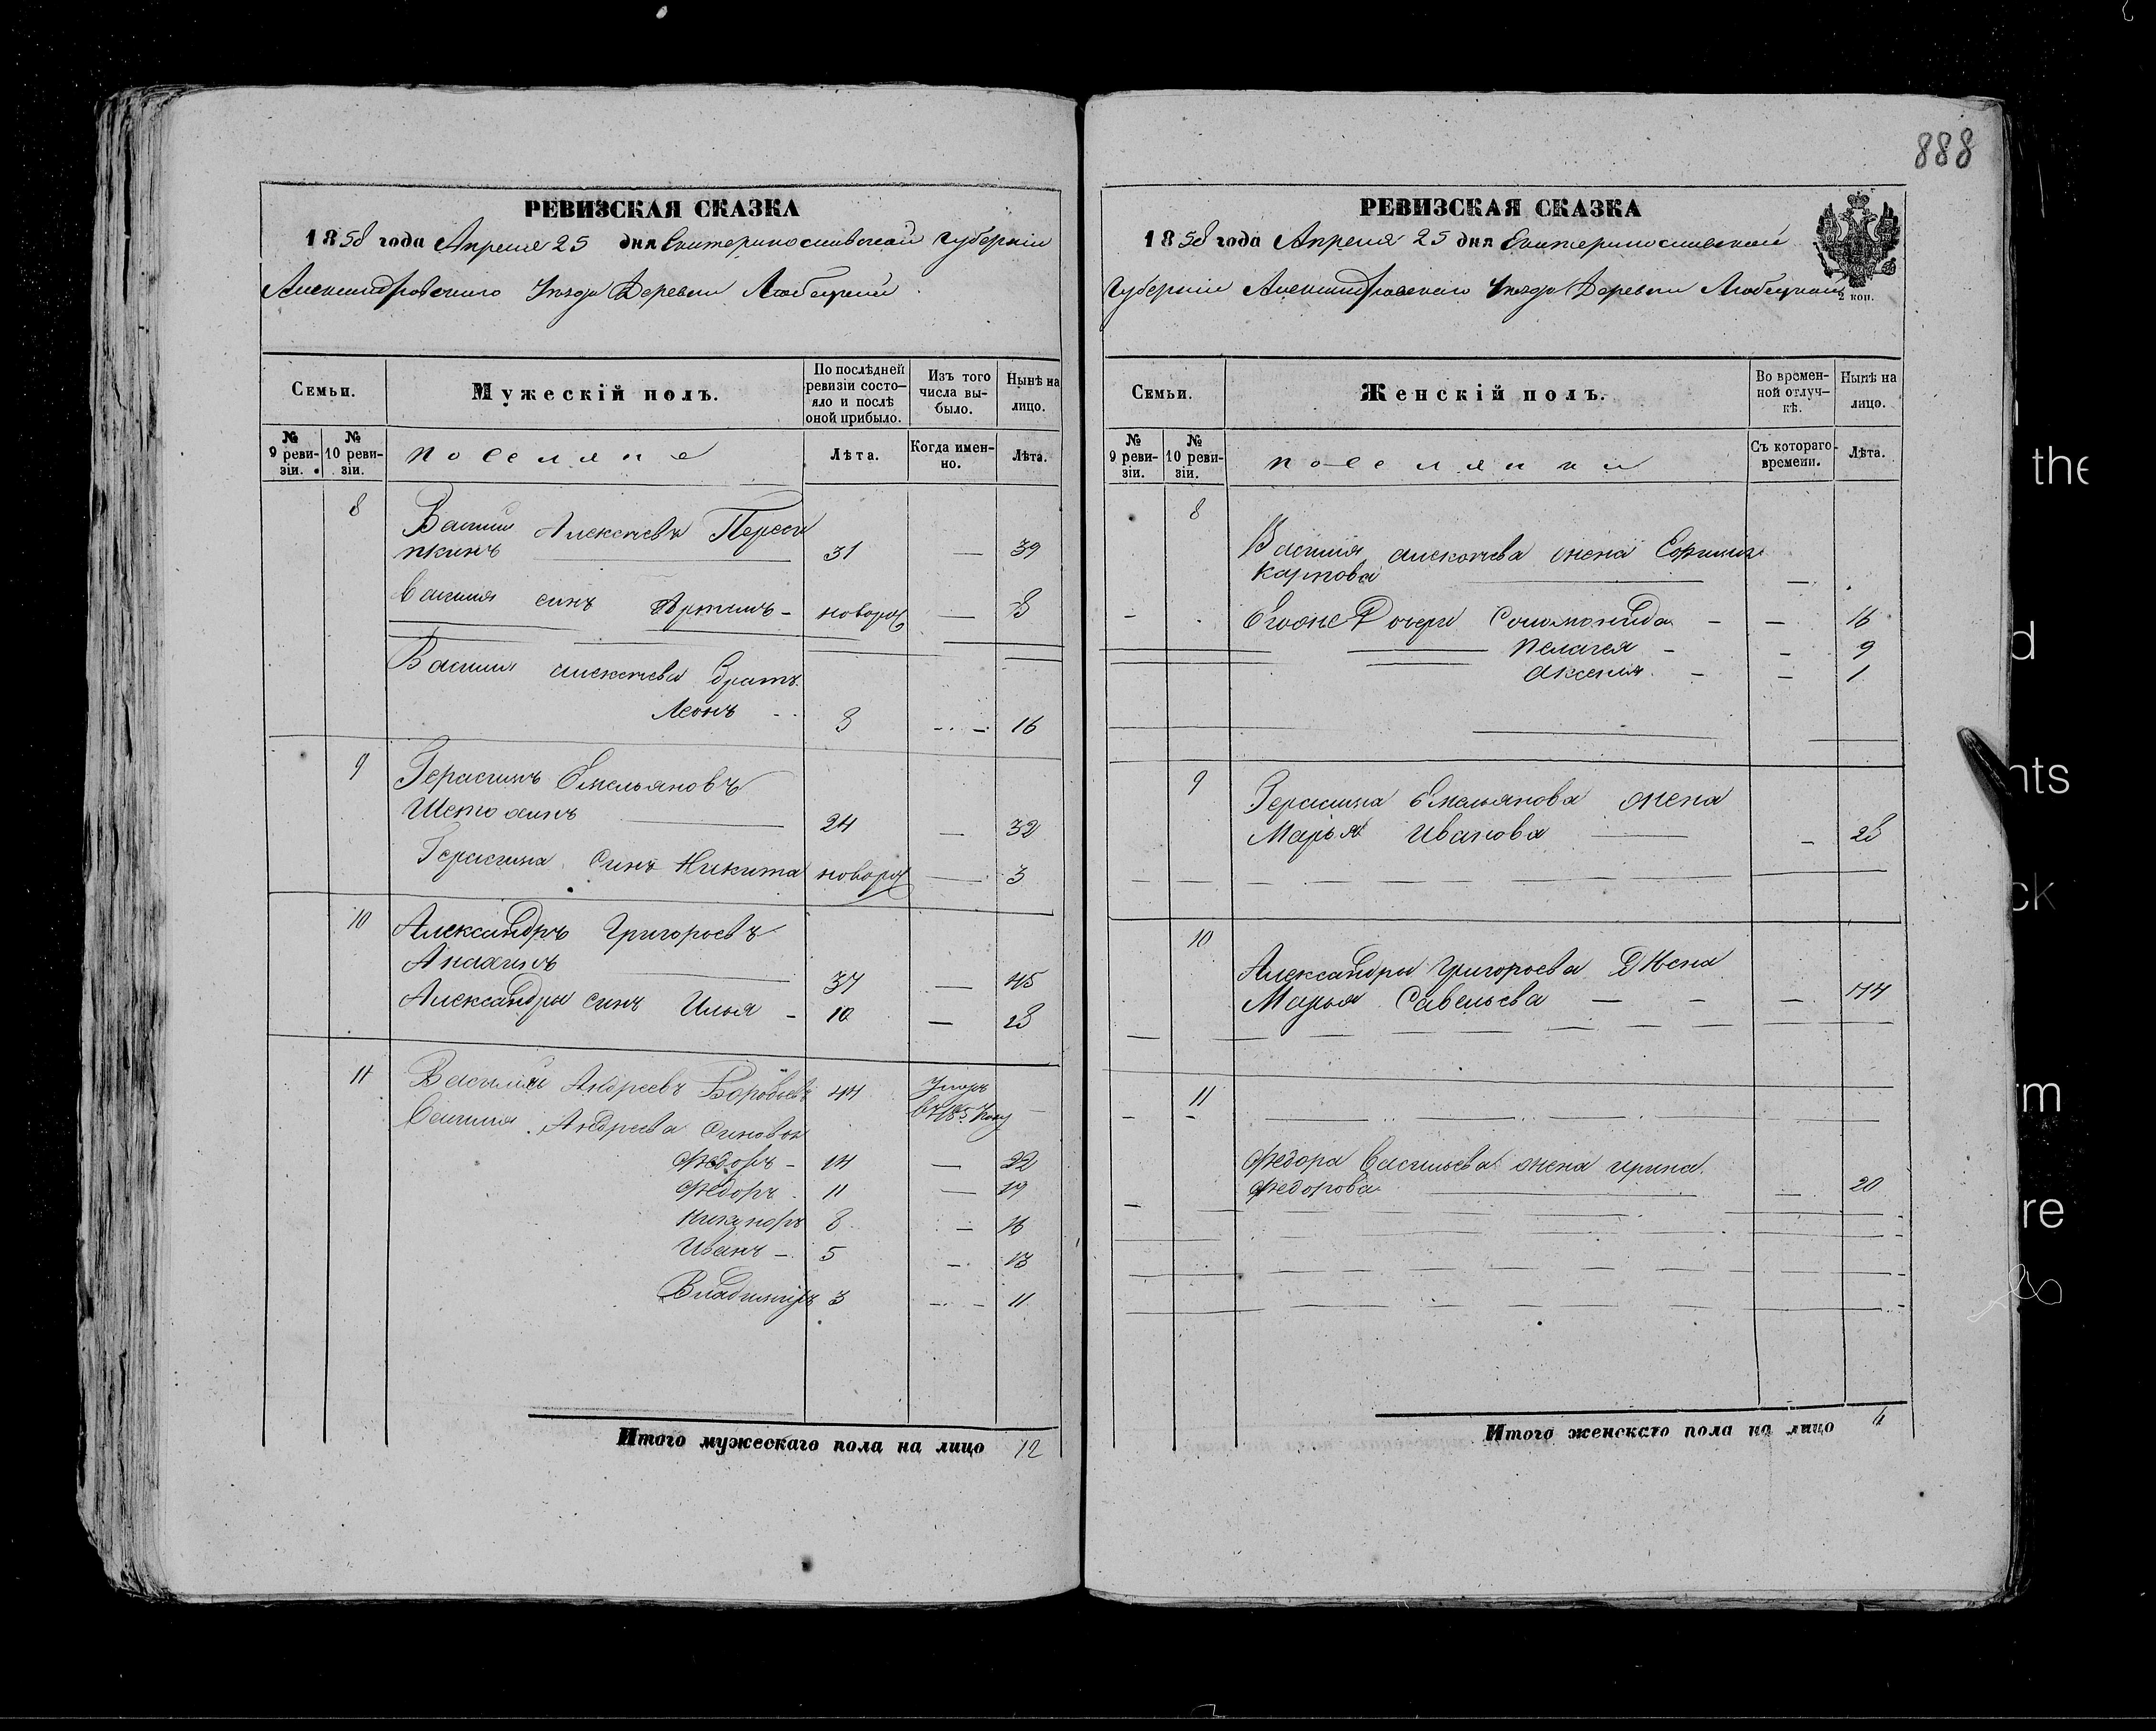 888
РЕВИЗСКАЯ СКАЗКА
1858 года Апреля 25 дня Екатеринославской губернiи
Александровского Уезда Деревни Любецкой
Семьи.
Мужескiй полъ.
По послѣдней ревизiи состо-
яло и послѣ
оной прибыло.
Изъ того
числа вы-
было.
Нынѣ на
лицо.
№
9 реви-
зiи.
№
10 реви-
зiи.
поселяне
Лѣта.
Когда имен-
но.
Лѣта.
8
Василий Алексеевъ
31 — 39
Василия синъ новорож — 8
Василия алексеева братъ
Леонъ 8 — 16
9 Герасимъ Емельяновъ
24 — 32
Герасима Синъ Никита новорож — 3
10 Александръ Григорьевъ
37 — 45
Александра синъ Илья - 10 —
11 Василий Андреевъ 44
Василия Андреева Синовья
Федоръ - 14 — 22
Федоръ 11 — 19
Никаноръ 8 — 16
Иванъ - 5 — 13
Владимiръ 3 — 11
Итого мужескаго пола на лицо 12
РЕВИЗСКАЯ СКАЗКА
1858 года Апреля 25 дня Екатеринославской
Губернiи Александровского Уезда Деревни Любецкой
2 коп.
Семьи.
Женскiй полъ.
Во времен-
ной отлуч-
кѣ.
Нынѣ на
лицо.
№
9 реви-
зiи.
№
10 реви-
зiи.
поселянки
Съ котораго
времени.
Лѣта.
8
Василия алексеева жена
Карпова
Егоже Дочери Соломонида - — 16
Пелагея - - 9
Аксения - - 1
9
Герасима Емельянова жена
Марья Иванова — - 28
10
Александра Григорьева Жена
Марья Савельева — - — 44
11
Федора Васильева жена ирина
Федорова — 20
Итого женскаго пола на лицо
the
d
nts
ck
im
re